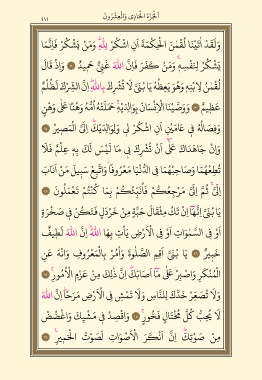 اَلْجُزْءُ الْحَادِى وَالْعِشْرُونَ
٤١١
وَلَقَدْ اٰتَيْنَا لُقْمٰنَ الْحِكْمَةَ اَنِ اشْكُرْ لِلّٰهِ وَمَنْ يَشْكُرْ فَاِنَّمَا
يَشْكُرُ لِنَفْسِه۪ وَمَنْ كَفَرَ فَاِنَّ اللّٰهَ غَنِىٌّ حَم۪يدٌ ۝ وَاِذْ قَالَ
لُقْمٰنُ لِابْنِه۪ وَهُوَ يَعِظُهُ يَا بُنَىَّ لَا تُشْرِكْ بِاللّٰهِ اِنَّ الشِّرْكَ لَظُلْمٌ
عَظ۪يمٌ ۝ وَوَصَّيْنَا الْاِنْسَانَ بِوَالِدَيْهِ حَمَلَتْهُ اُمُّهُ وَهْنًا عَلٰى وَهْنٍ
وَفِصَالُهُ ف۪ى عَامَيْنِ اَنِ اشْكُرْ ل۪ى وَلِوَالِدَيْكَ اِلَىَّ الْمَص۪يرُ ۝
وَاِنْ جَاهَدَاكَ عَلٰى اَنْ تُشْرِكَ ب۪ى مَا لَيْسَ لَكَ بِه۪ عِلْمٌ فَلَا
تُطِعْهُمَا وَصَاحِبْهُمَا فِى الدُّنْيَا مَعْرُوفًا وَاتَّبِعْ سَب۪يلَ مَنْ اَنَابَ
اِلَىَّ ثُمَّ اِلَىَّ مَرْجِعُكُمْ فَاُنَبِّئُكُمْ بِمَا كُنْتُمْ تَعْمَلُونَ ۝
يَا بُنَىَّ اِنَّهَا اِنْ تَكُ مِثْقَالَ حَبَّةٍ مِنْ خَرْدَلٍ فَتَكُنْ ف۪ى صَخْرَةٍ
اَوْ فِى السَّمٰوَاتِ اَوْ فِى الْاَرْضِ يَاْتِ بِهَا اللّٰهُ اِنَّ اللّٰهَ لَط۪يفٌ
خَب۪يرٌ ۝ يَا بُنَىَّ اَقِمِ الصَّلٰوةَ وَاْمُرْ بِالْمَعْرُوفِ وَانْهَ عَنِ
الْمُنْكَرِ وَاصْبِرْ عَلٰى مَا اَصَابَكَ اِنَّ ذٰلِكَ مِنْ عَزْمِ الْاُمُورِ ۝
وَلَا تُصَعِّرْ خَدَّكَ لِلنَّاسِ وَلَا تَمْشِ فِى الْاَرْضِ مَرَحًا اِنَّ اللّٰهَ
لَا يُحِبُّ كُلَّ مُخْتَالٍ فَخُورٍ ۝ وَاقْصِدْ ف۪ى مَشْيِكَ وَاغْضُضْ
مِنْ صَوْتِكَ اِنَّ اَنْكَرَ الْاَصْوَاتِ لَصَوْتُ الْحَم۪يرِ ۝